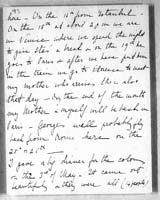 here - On the 11th from Istanbul.
On the 18th at about 2.30 we are
in Venice where we spend the night
to give Otis' a break - on the 19th he
goes to Paris after we have put him
in the train we go to Florence to meet
my mother who arrives there also
that day - On the end of the month
my Mother & myself will be back in
Paris - George will probably fly
back from Rome here on the
25th or 26th
I gave a big dinner for the colony
on the 3rd of May. It came out
beautifully & they were all (12 people)